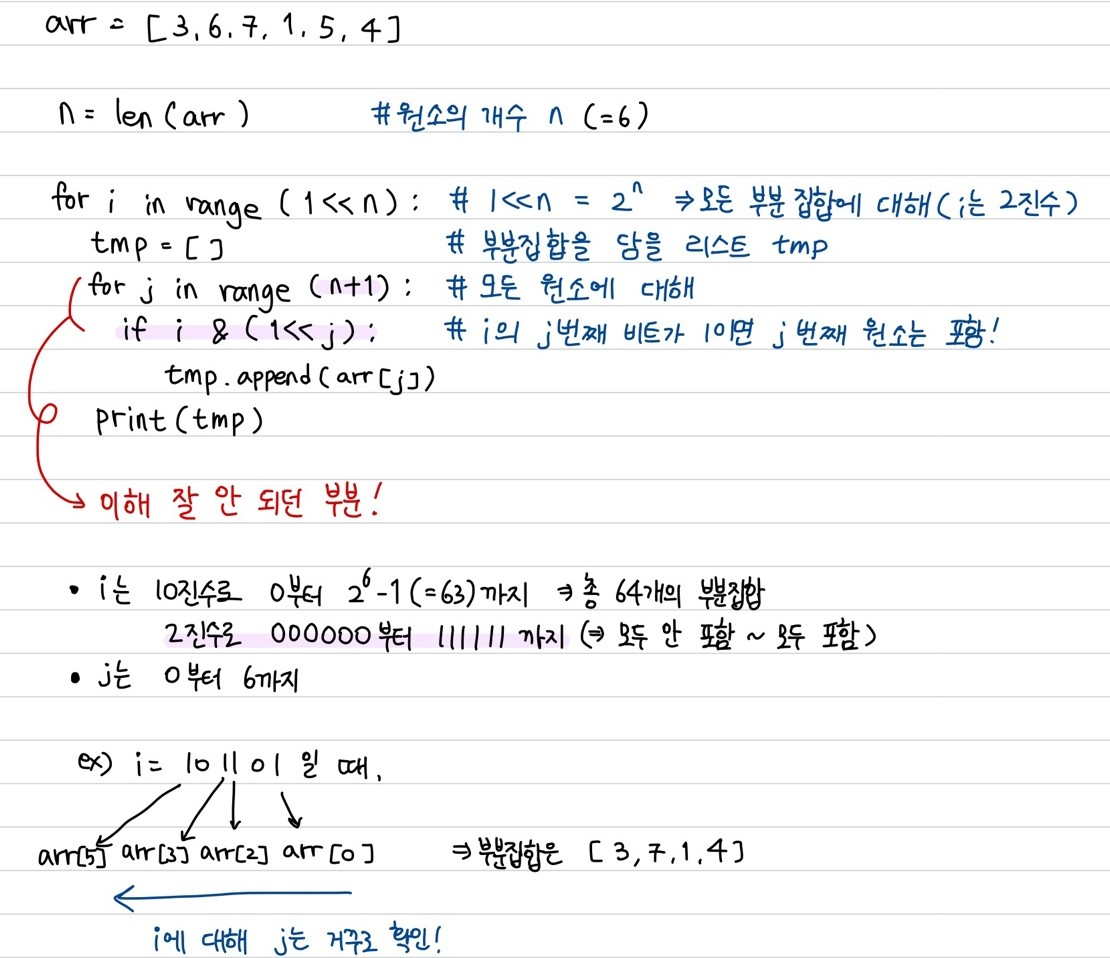 arr = [3, 6, 7, 1, 5, 4]
n = len (arr) #원소의 개수 n (=6)
for i in range (1<<n): # 1<<n = 2ⁿ ⇒ 모든 부분집합에 대해 (i는 2진수)
tmp = [] # 부분집합을 담을 리스트 tmp
for j in range (n+1): # 모든 원소에 대해
if i & (1<<j): # i의 j번째 비트가 1이면 j번째 원소는 포함!
tmp.append(arr[j])
print(tmp)
이해 잘 안 되던 부분!
• i는 10진수로 0부터 2⁶-1(=63)까지 ⇒ 총 64개의 부분집합
2진수로 000000부터 111111까지 (⇒ 모두 안 포함 ~ 모두 포함)
• j는 0부터 6까지
ex) i= 101101 일 때,
arr[5] arr[3] arr[2] arr[0] ⇒ 부분집합은 [3, 7, 1, 4]
i에 대해 j는 거꾸로 확인!